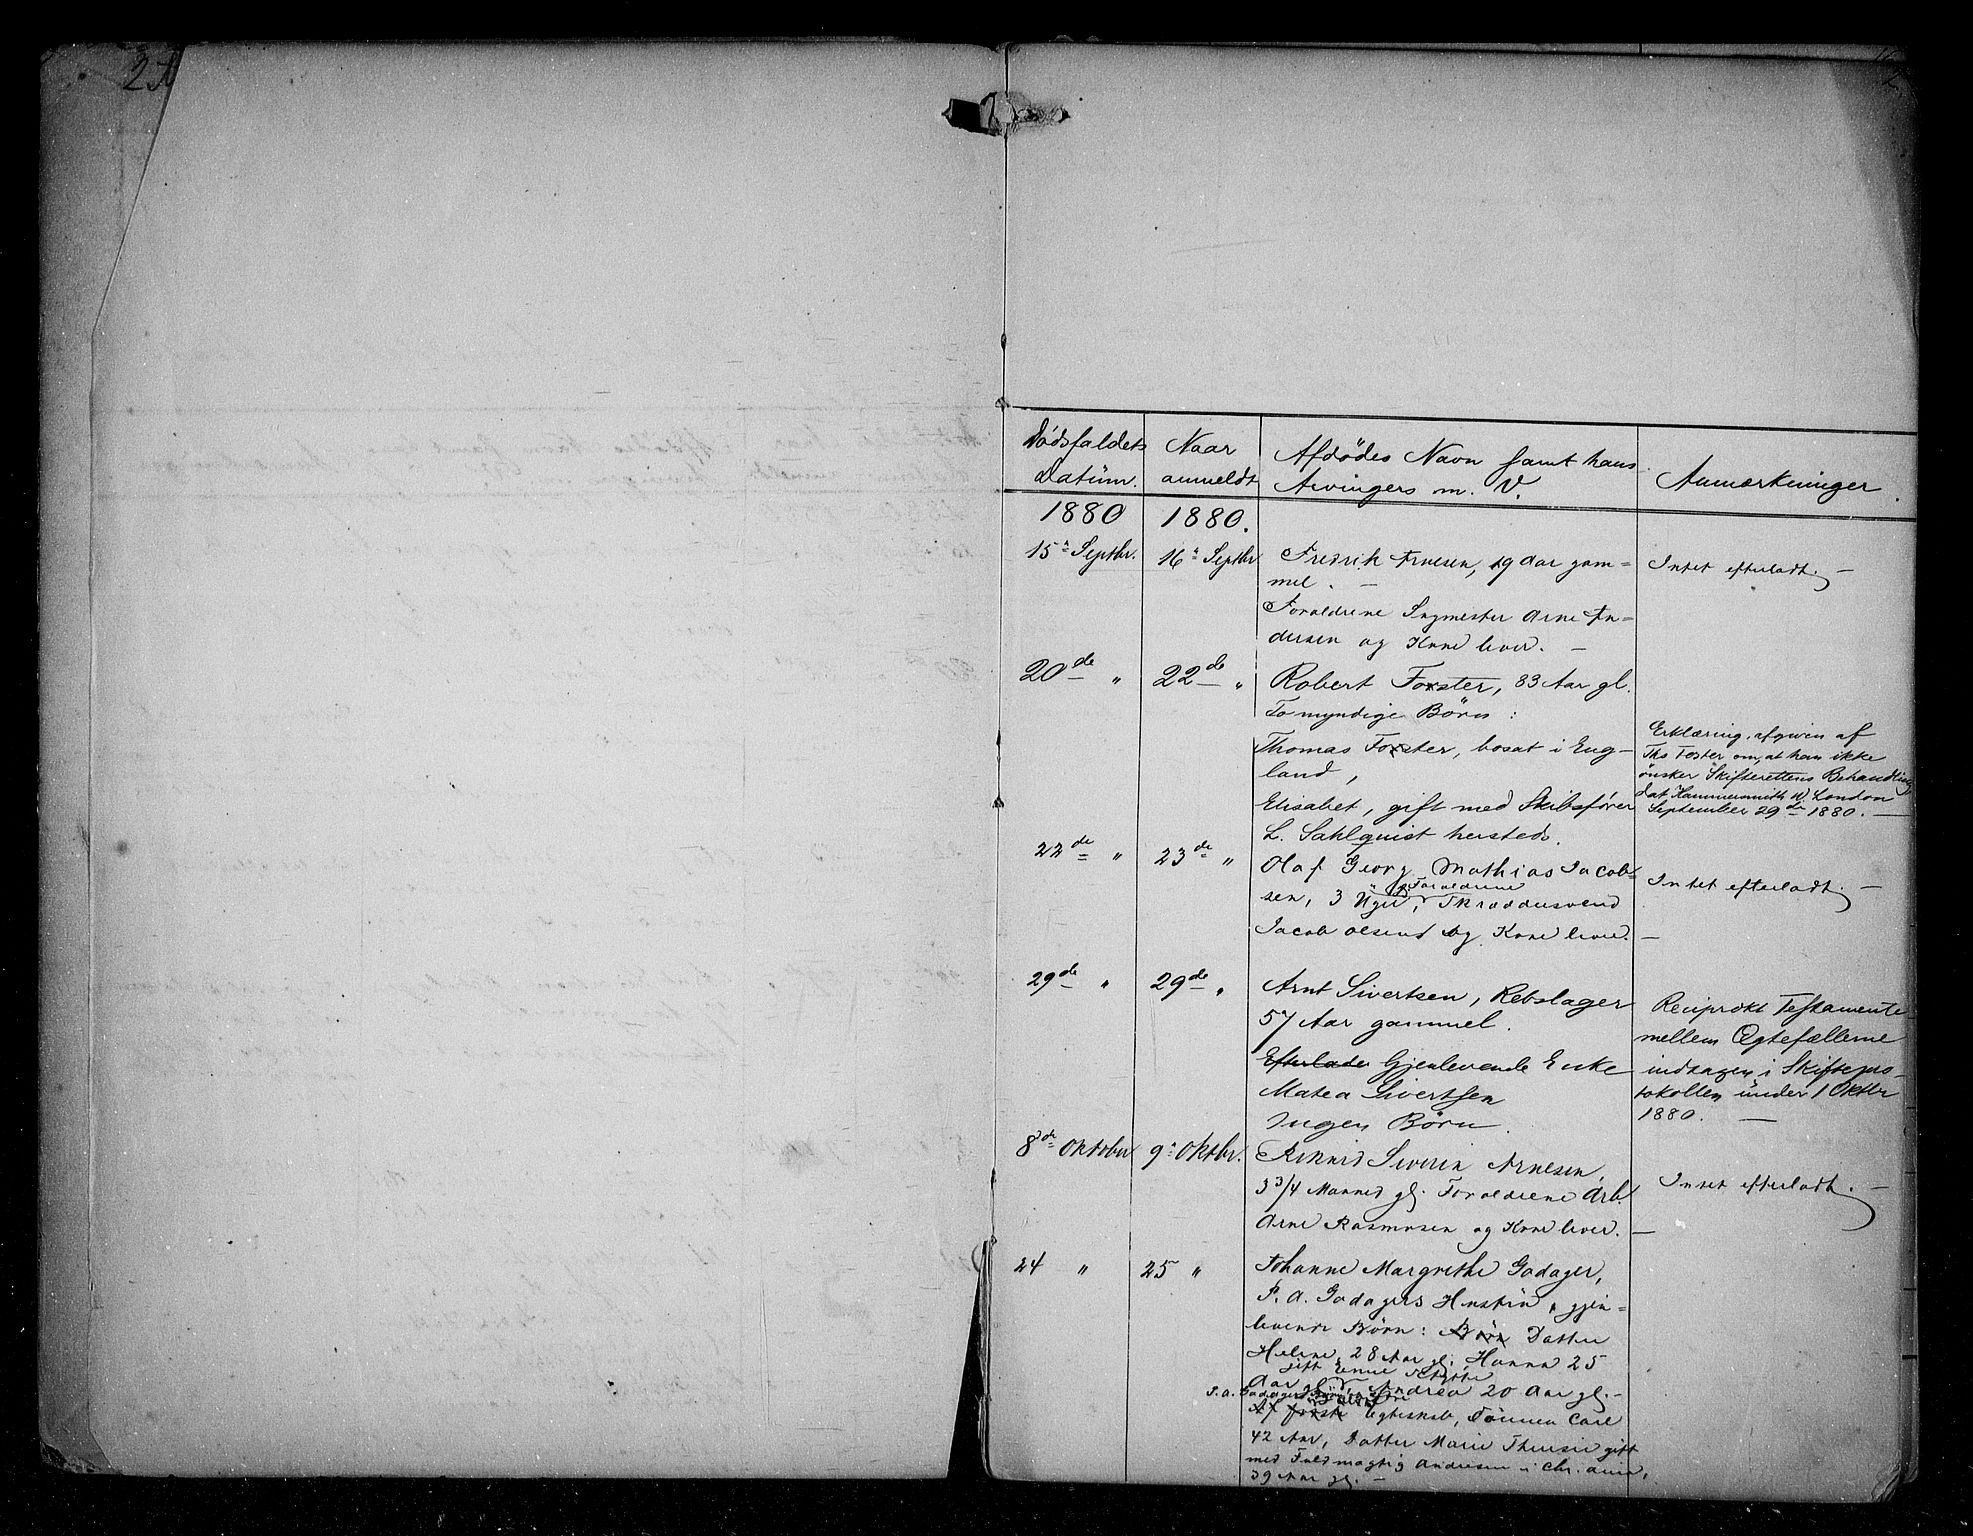 2
Dødsfaldets Datüm.
Naar anmeldt
Afdødes Navn samt hans Arvingers m. V.
Anmærkninger.
1880
1880.
15de Septbr.
16de Septbr
Fredrik Arnesen, 19 Aar gam=
mel. —
Forældrene Sagmester Arne An=
dersen og Kone lever. —
Intet efterladt. —
20de "
22de "
Robert Forster, 83 Aar gl.
To myndige Børn:
Thomas Forster, bosat i Eng-
land,
Elisabet, gift med Skibsfører
L. Sahlquist hersteds.
Erklæring afgiven af
Ths Forster om, at han ikke
ønsker Skifterettens Behandling
dat. Hammersmith W London
September 29de 1880. —
22de "
23de "
Olaf Georg Mathias Jacob=
sen, 3 Uger, Forældrene Skræddersvend
Jacob Olsen og Kone lever. —
Intet efterladt. —
29de "
29de "
Arnt Sivertsen, Rebslager
57 Aar gammel.
Efterlader Gjenlevende Enke
Matea Sivertsen
Ingen Børn.
Reciprokt Testamente
mellem Ægtefællerne
indtagen i Skiftepro-
tokollen under 1 Oktbr
1880. —
8de Oktober
9de Oktbr.
Severin Arnesen,
3 3/4 Maaned gl. Forældrene Arb.
Arne Rasmusen og Kone lever. —
Intet efterladt. —
24 "
25 "
Johanne Margrethe Gadager,
P. A. Gadagers Hustru, gjen=
levende Børn: Børn Datter
Helene, 28 Aar gl. Hanna 25
gift
Aar gl. Andrea 20 Aar gl. —
P. A. Gadagers
Af første Egteskab, Sønnen Carl
42 Aar, Datter Marie Theresie gift
med Fuldmægtig Andresen i Chr.ania,
39 Aar gl. —